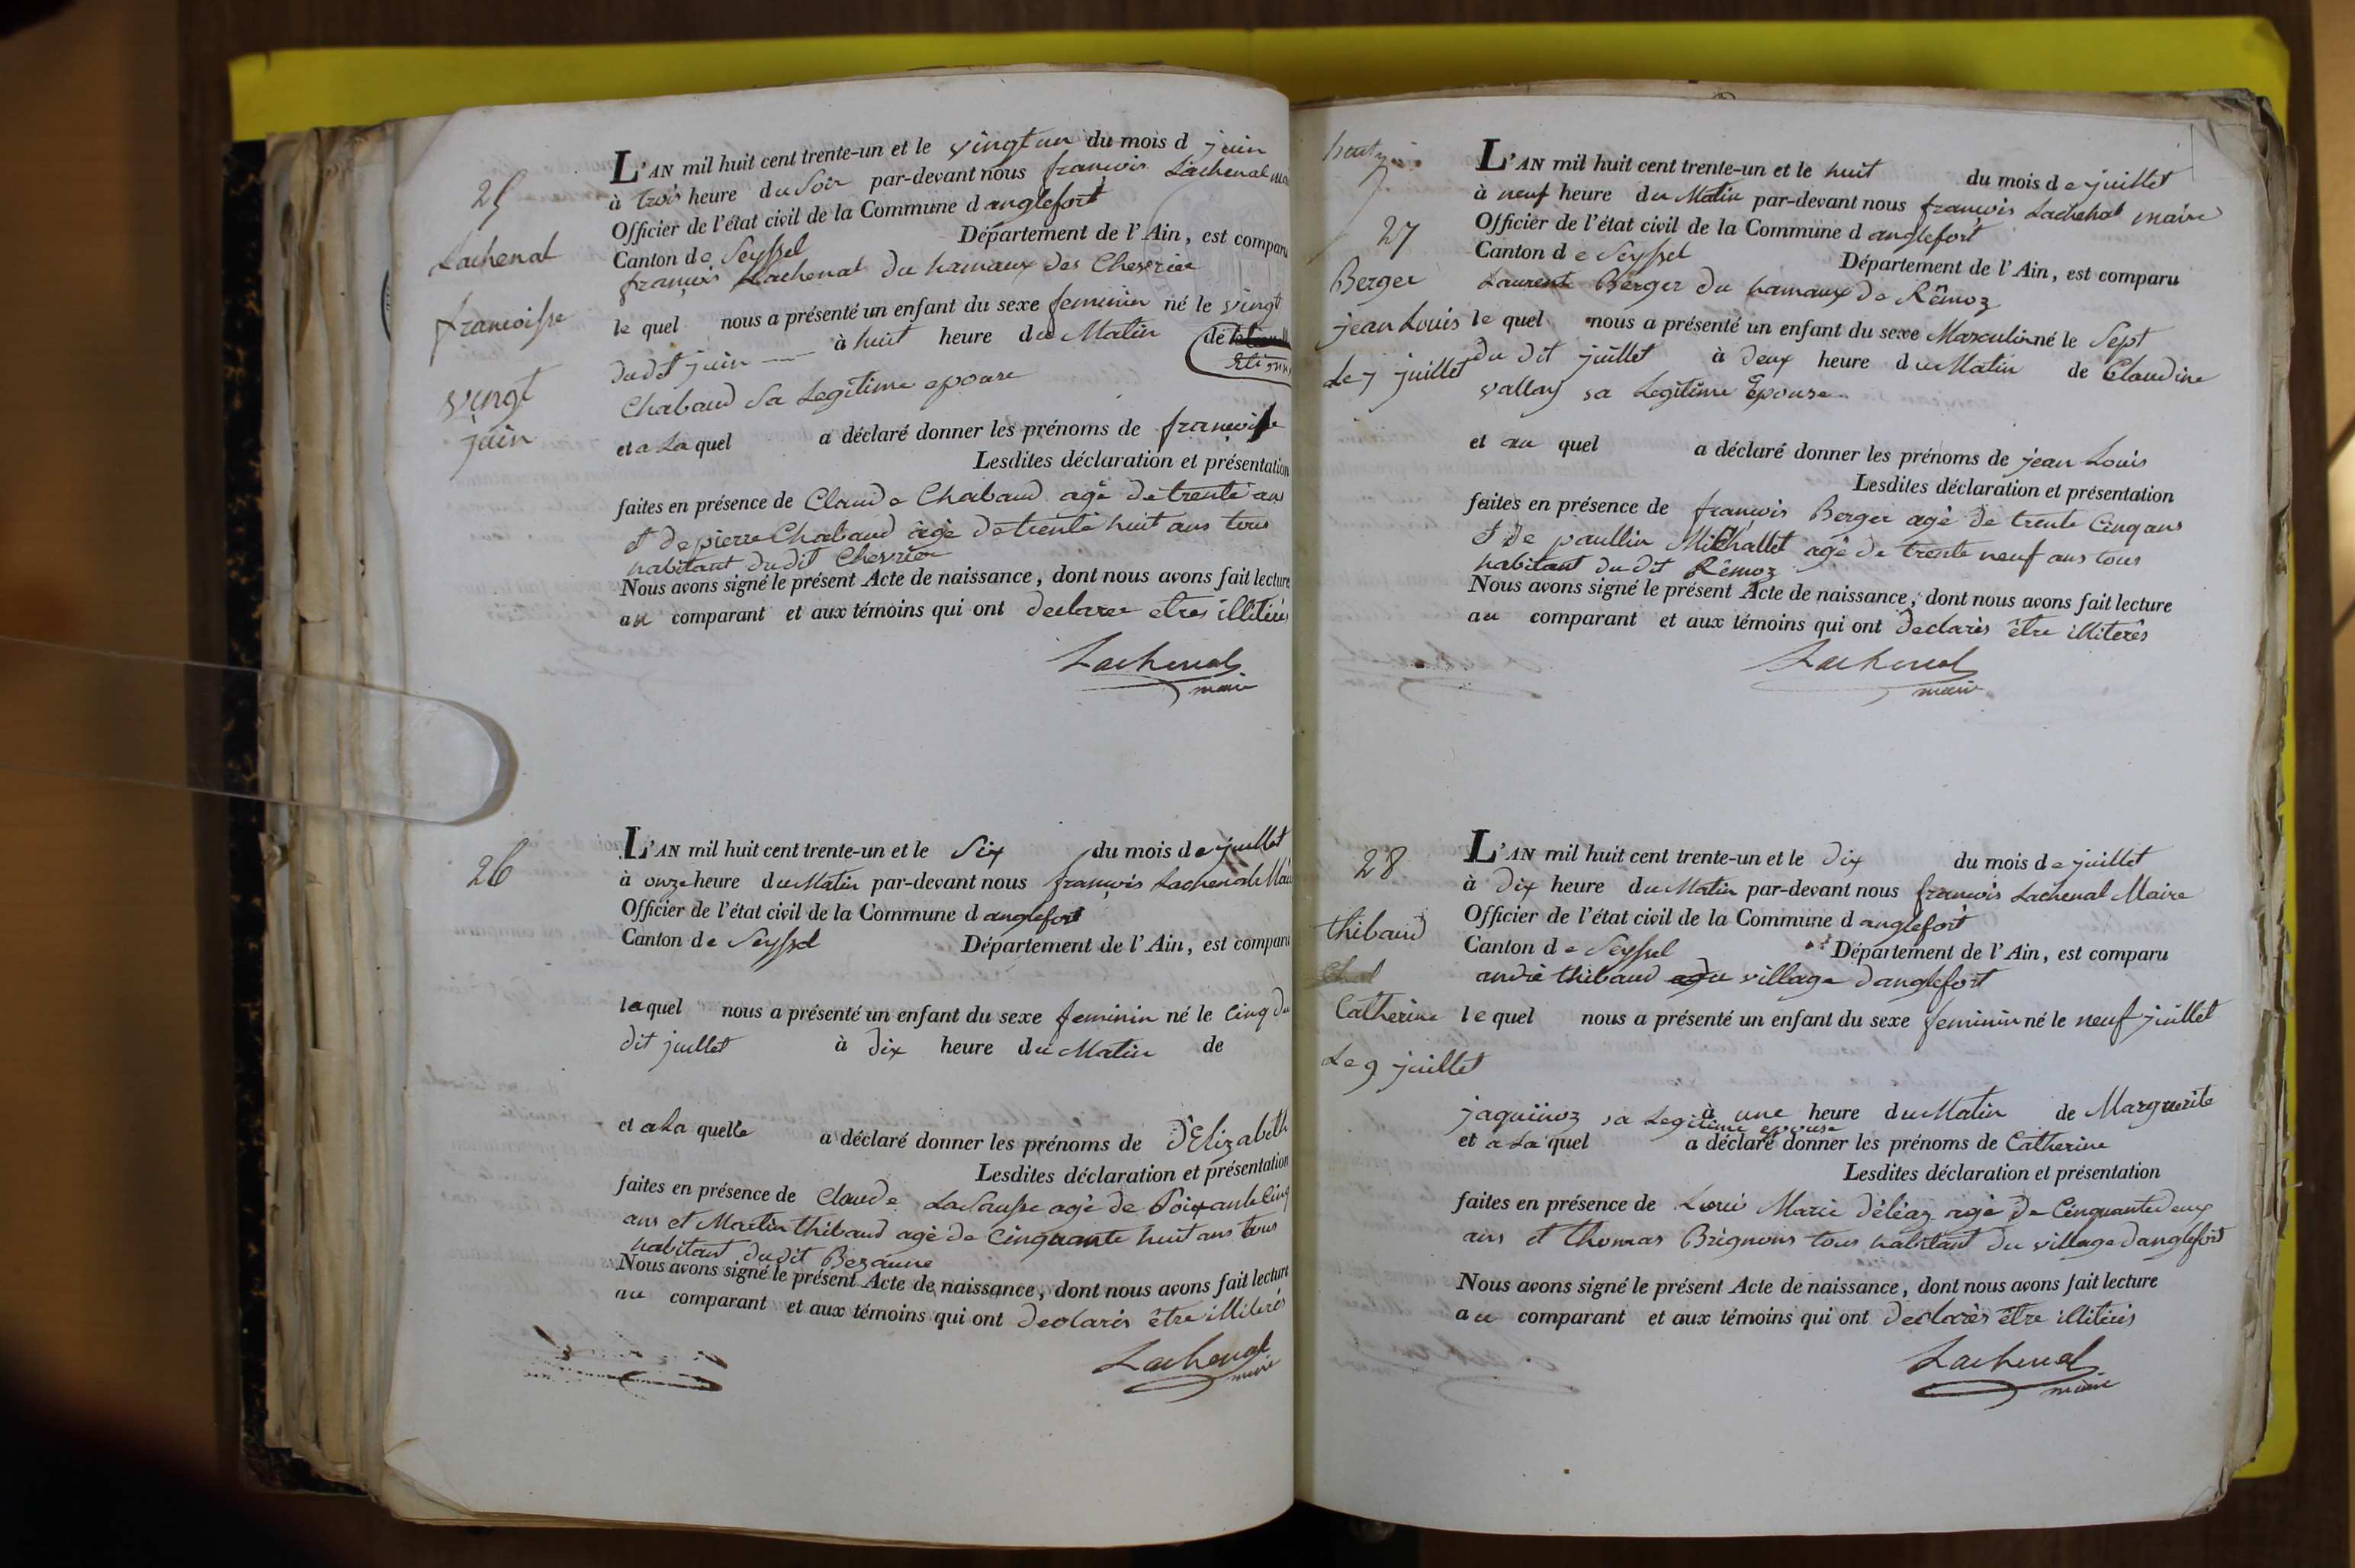 25
Lachenal
francoisse
vingt
juin
L'AN mil huit cent trente-un et le vingt un du mois d juin
à trois heure du Soir par-devant nous francois Lachenal
Officier de l'état civil de la Commune d anglefort
Canton de Seyssel Département de l'Ain, est comparu
françois Lachenal du hamaux des Chesrier
le quel nous a présenté un enfant du sexe feminin né le vingt
dudit juin à huit heure du Matin de
Chabaud Sa Legitime epouse
et a La quel a déclaré donner les prénoms de francoise
Lesdites déclaration et présentation
faites en présence de Claude Chabaud agé de trente an
et de pierre Chabaud âgé de trente huit ans tous
habitant du dit Chesrier
Nous avons signé le présent Acte de naissance, dont nous avons fait lecture
au comparant et aux témoins qui ont declarer etres illiterés
Lachenal
maire
26
L'AN mil huit cent trente-un et le Six du mois de juillet
à onze heure du Matin par-devant nous françois Lachenal
Officier de l'état civil de la Commune d anglefort
Canton de Seyssel Département de l'Ain, est comparu
lequel nous a présenté un enfant du sexe feminin né le Cinq du
dit juillet à dix heure du Matin de
et a La quelle a déclaré donner les prénoms de d'Elizabeth
Lesdites déclaration et présentation
faites en présence de Claude LaSausse agé de Soixante Cinq
ans et Martin thibaud agé de Cinquante huit ans tous
habitant du dit Bezanne
Nous avons signé le présent Acte de naissance, dont nous avons fait lecture
au comparant et aux témoins qui ont declarés être illiterés
Lachenal
maire
27
Berger
jean Louis
Le 7 juillet
L'AN mil huit cent trente-un et le huit du mois de juillet
à neuf heure du Matin par-devant nous françois Lachenal maire
Officier de l'état civil de la Commune d anglefort
Canton de Seyssel Département de l'Ain, est comparu
Laurent Berger du hamaux de Rêmoz
le quel nous a présenté un enfant du sexe Masculin né le Sept
du dit juillet à deux heure du Matin de Claudine
vallay sa Legitime Epouse
et au quel a déclaré donner les prénoms de jean Louis
Lesdites déclaration et présentation
faites en présence de françois Berger agé de trente Cinq ans
et de paullin Michallet agé de trente neuf ans tous
habitant du dit Rêmoz
Nous avons signé le présent Acte de naissance, dont nous avons fait lecture
au comparant et aux témoins qui ont declarés être illiterés
Lachenal
maire
28
thibaud
Catherine
Le 9 juillet
L'AN mil huit cent trente-un et le dix du mois de juillet
à dix heure du Matin par-devant nous francois Lachenal Maire
Officier de l'état civil de la Commune d anglefort
Canton de Seyssel Département de l'Ain, est comparu
andré thibaud du village d'anglefort
le quel nous a présenté un enfant du sexe feminin né le neuf juillet
à une heure du Matin de Marguerite
jaquinoz sa Legitime epouse
et a La quel a déclaré donner les prénoms de Catherine
Lesdites déclaration et présentation
faites en présence de Loui Marie déléaz agé de Cinquante deux
ans et thomas Brignons tous habitant du village danglefort
Nous avons signé le présent Acte de naissance, dont nous avons fait lecture
au comparant et aux témoins qui ont declarés être illiterés
Lachenal
maire